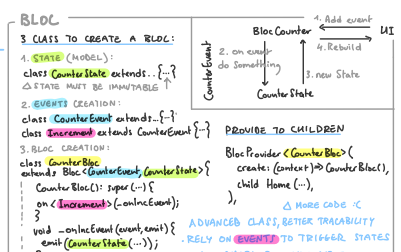 BLOC
3 CLASS TO CREATE A BLOC:
1. STATE (MODEL):
class CounterState extends..{...}
△ STATE MUST BE IMMUTABLE
2. EVENTS CREATION:
class CounterEvent extends...{...}
class Increment extends CounterEvent {...}
3. BLOC CREATION:
class CounterBloc
extends Bloc<CounterEvent, CounterState>{
CounterBloc(): super(...) {
on<Increment>(_onIncEvent);
}
void _onIncEvent(event, emit) {
emit(CounterState(...));
BlocCounter
1. Add event
UI
4. Rebuild
CounterEvent
2. on event
do something
3. new State
CounterState
PROVIDE TO CHILDREN
BlocProvider<CounterBloc>(
create: (context)=> CounterBloc(),
child Home(...),
),
△ MORE CODE :(
ADVANCED CLASS, BETTER TRACABILITY
- RELY ON EVENTS TO TRIGGER STATES